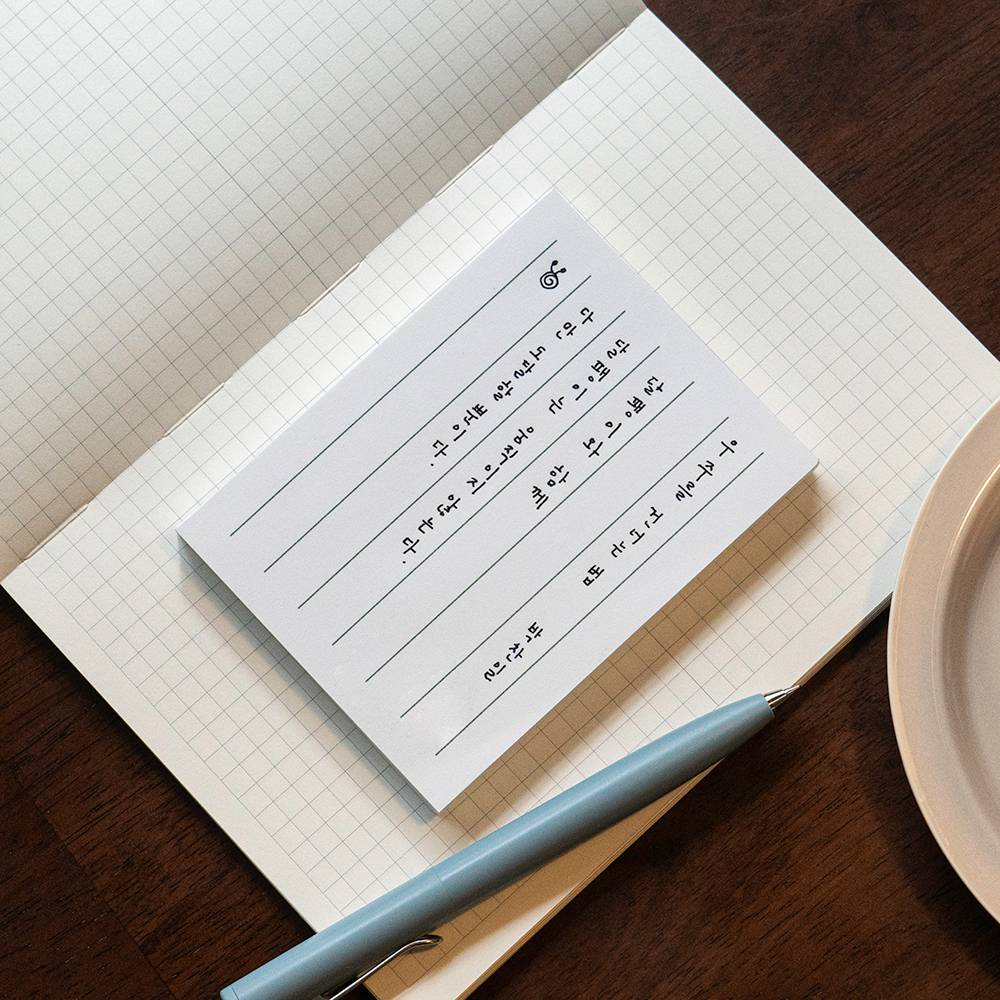 우주를 건너는 법 박찬일
달팽이와 함께
달팽이는 움직이지 않는다.
다만 도달할 뿐이다.